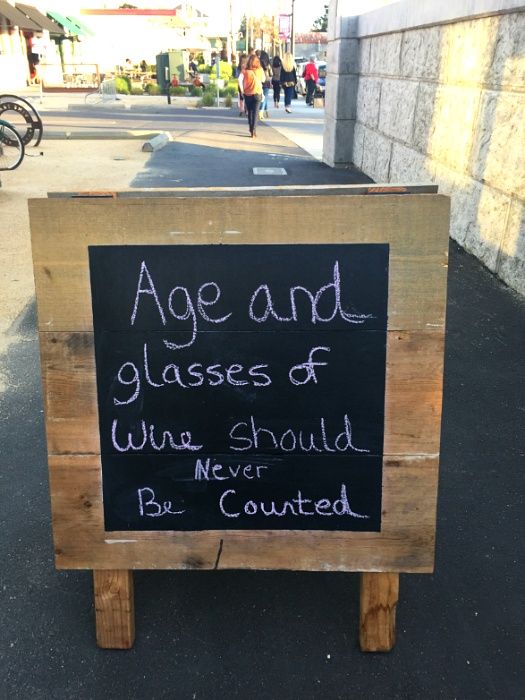 Age and
glasses of
Wine should
Never
Be Counted